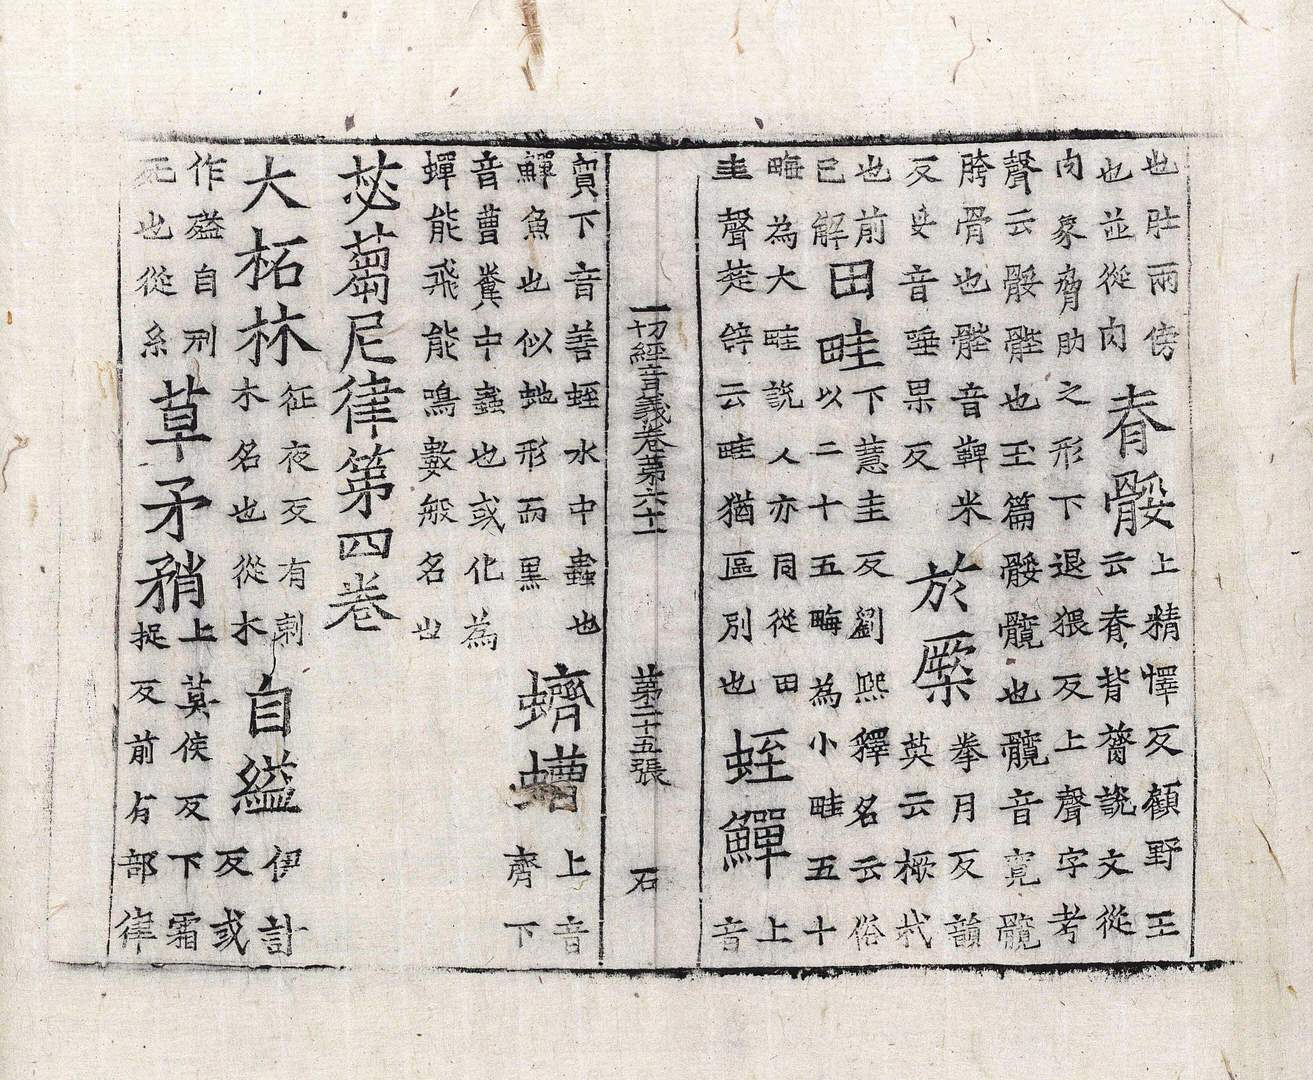 也肚兩傍也並從肉脊骽上精懌反顧野王云脊背膂說文從
肉象脅肋之形下退猥反上聲字考聲云骽髀也玉篇骽髖也髖音寬髖
胯骨也髀音鞞米反音唾果反於橜拳月反韻英云橛杙
也前已解田畦下慧圭反劉熙釋名云俗以二十五畮為小畦五十
畮為大畦說人亦同從田圭聲楚辝云畦猶區別也蛭鱓上音
一切經音義卷第六十一 第二十五張 石
質下音善蛭水中蟲也鱓魚也似虵形而黒蠐螬上音齊下
音曹糞中蟲也或化為蟬能飛能鳴數般名也
苾蒭尼律第四卷
大柘林征夜反有刺木名也從木自縊伊計反或
作自刑死也從糸草矛矟上莫侯反下霜捉反前有部律